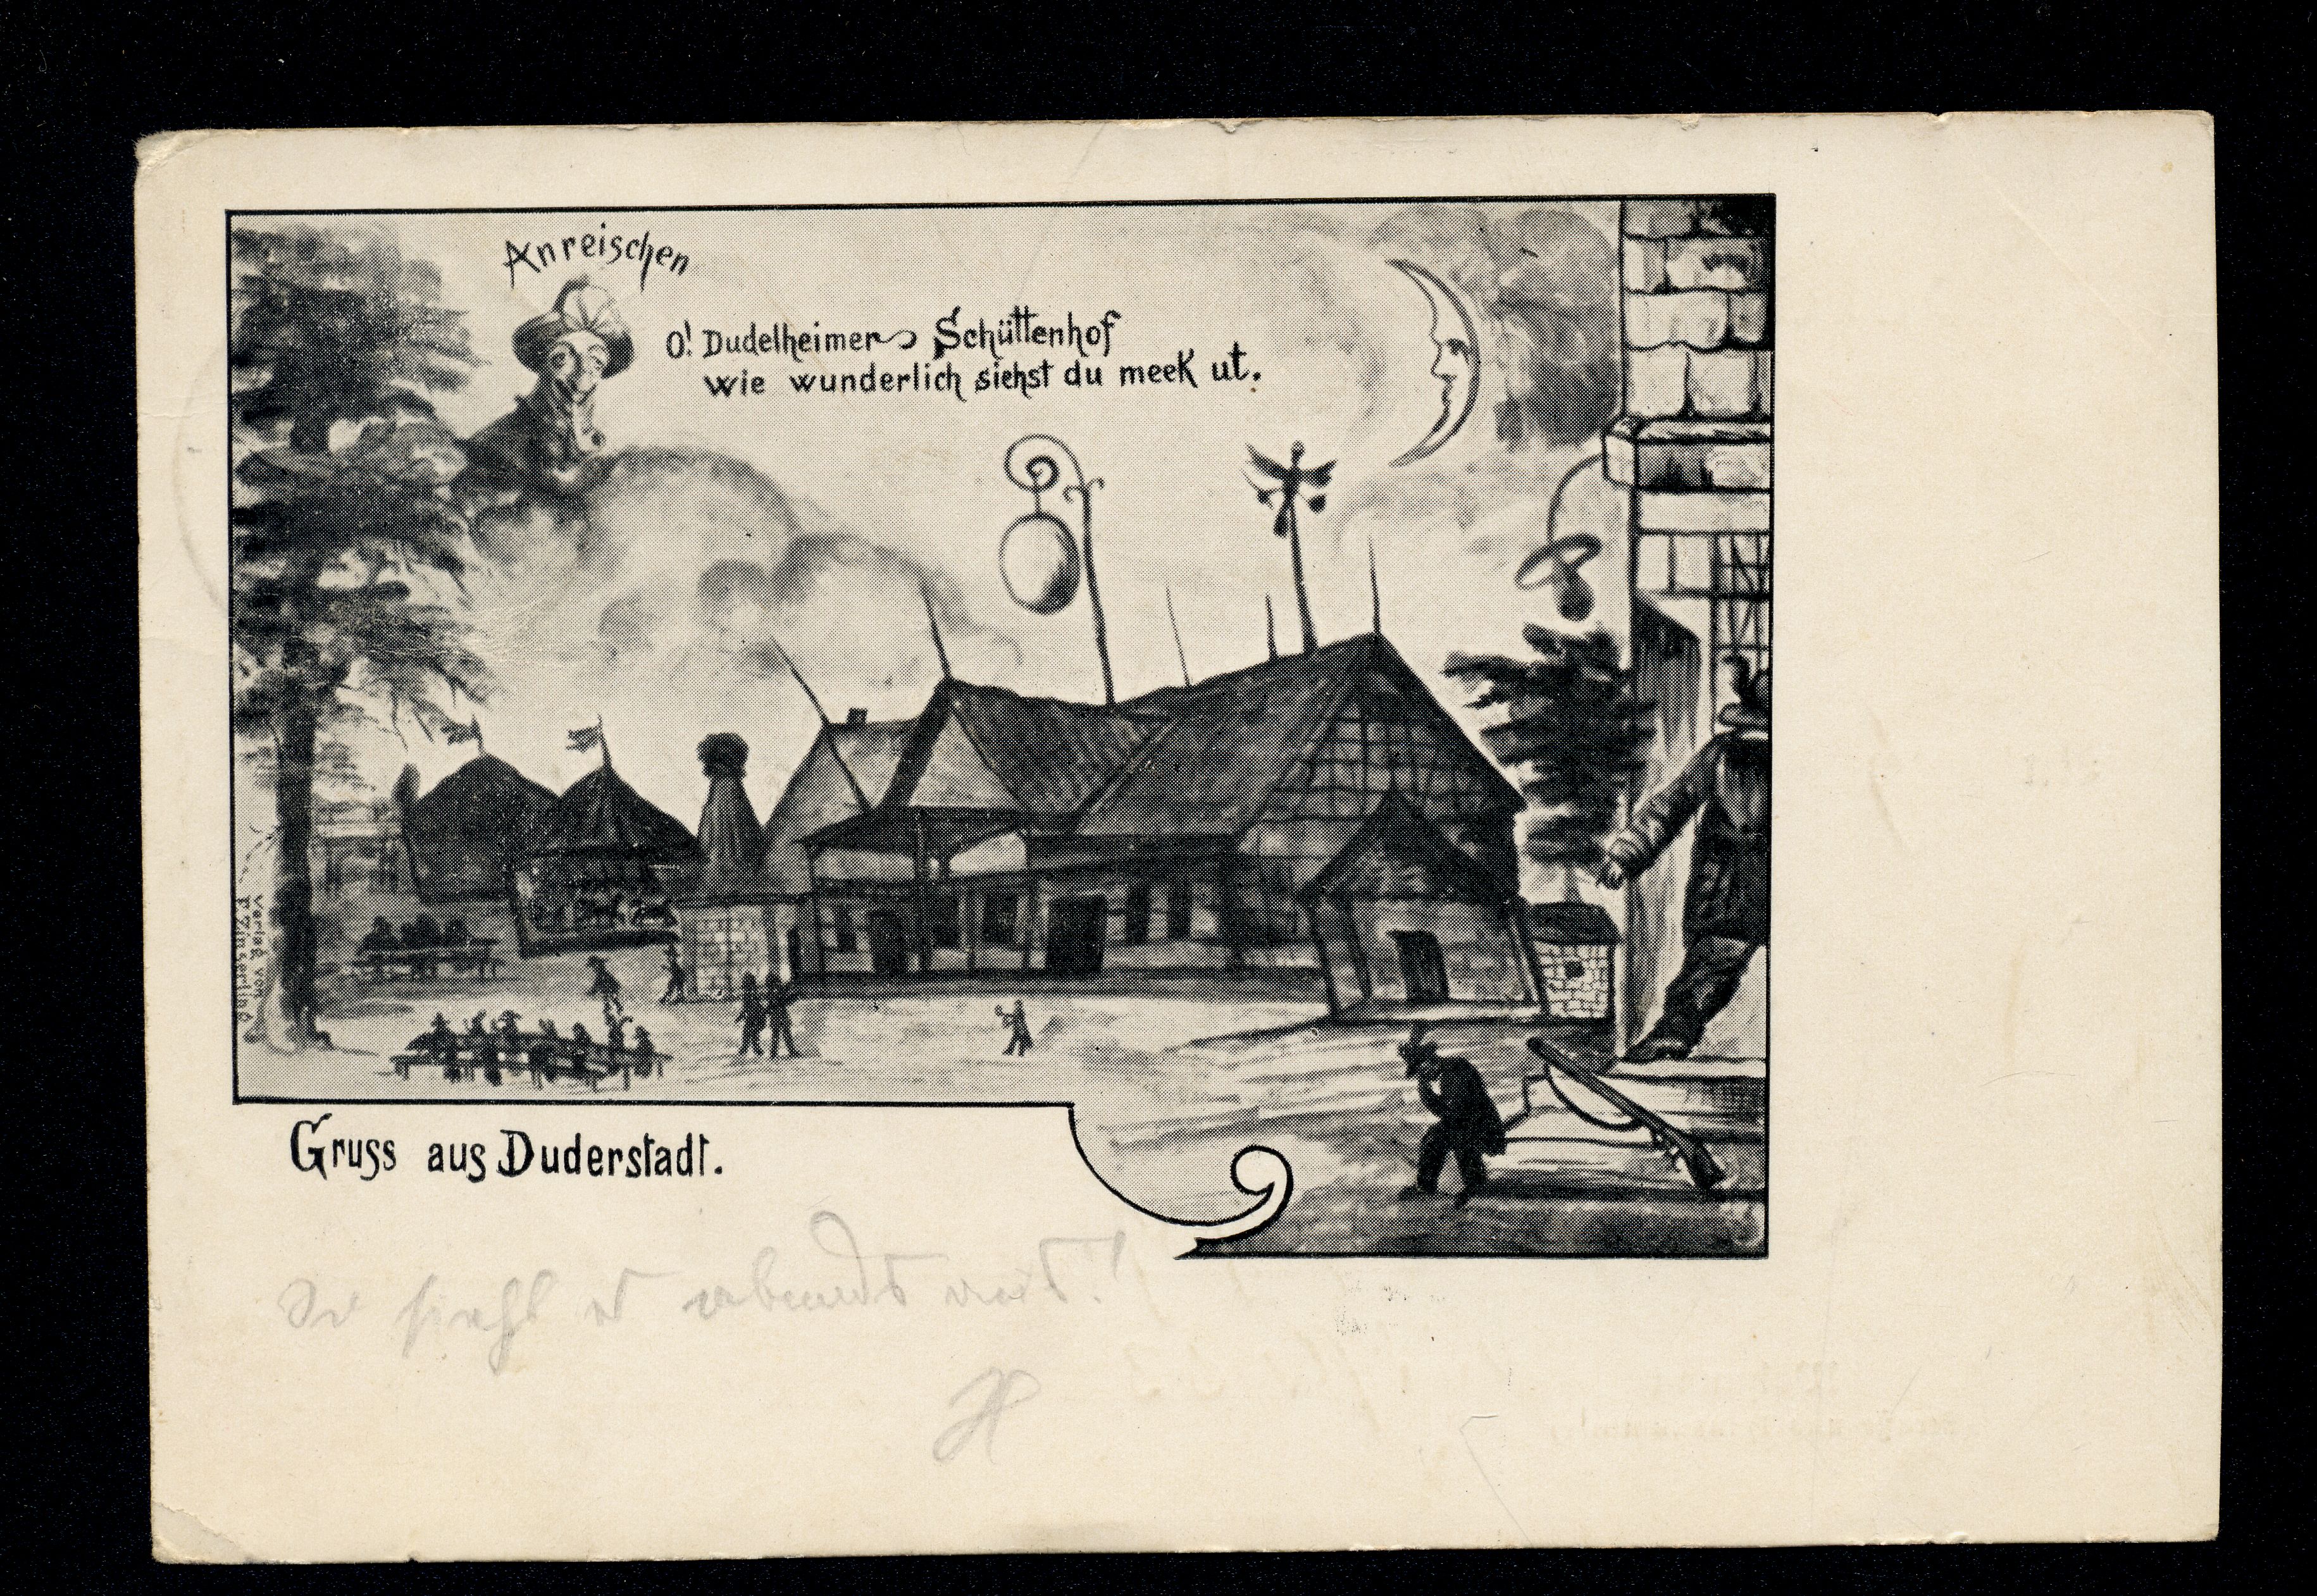 Anreischen
O! Dudelheimer Schüttenhof
wie wunderlich siehst du meek ut.
Verlag von
F. Zinserling
Gruss aus Duderstadt.
So sieht es abends aus!
H